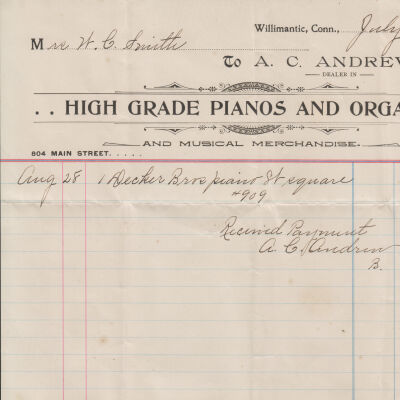 Willimantic, Conn., July
Mrs W. C. Smith
To A. C. ANDREW
DEALER IN
. . HIGH GRADE PIANOS AND ORGA
AND MUSICAL MERCHANDISE.
804 MAIN STREET. . . . .
Aug 28 1 Decker Bros piano St. square
#909
Received Payment
A. C. Andrew
B.